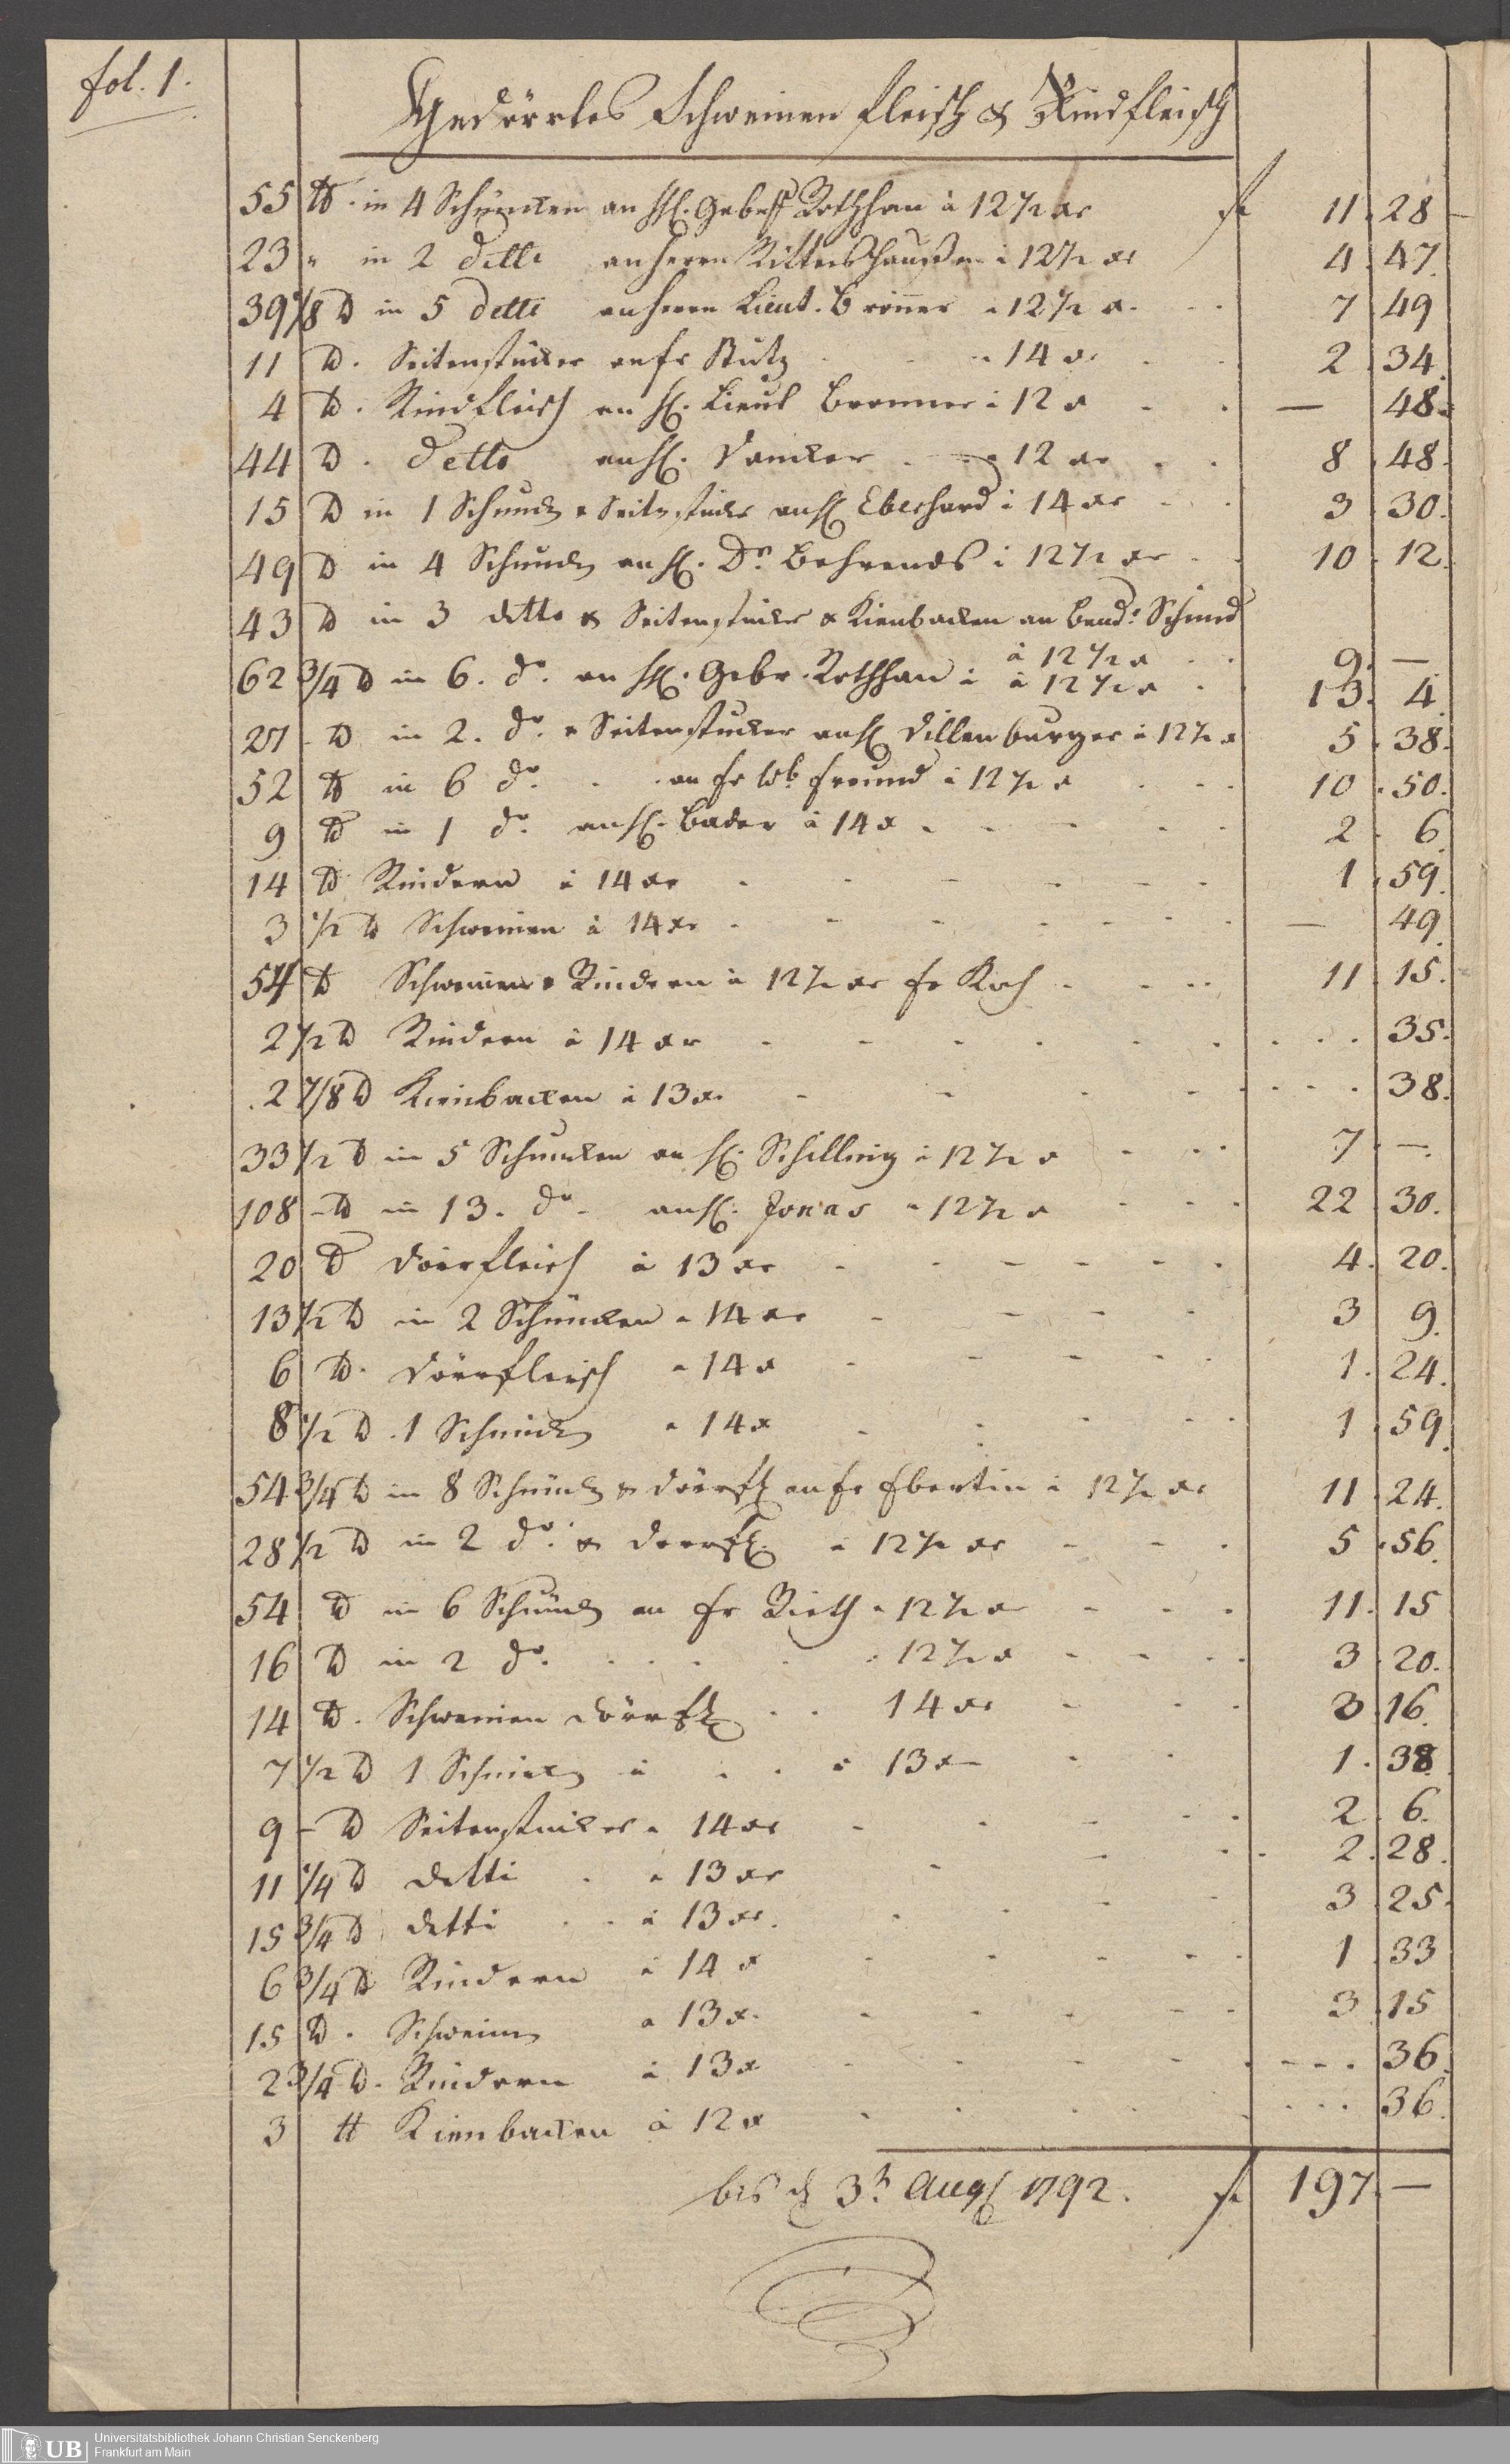 fol. 1.
Gedörrtes Schweinen fleisch & Rindfleisch
55 ℔. in 4 Schuncken an HH. Gebr Rothhan à 12½ xr f 11. 28
23 " in 2 detti an Herrn Rittershausen à 12½ xr 4. 47.
39 ℔ in 5 detti an Herrn Lieut. Brönner à 12½ x. 7 49
11 ℔. Seitenstücker an fr Stutz à 14 xr 2. 34.
4 ℔. Rindfleisch an H. Lieut Bronner à 12 x — 48
44 ℔. detto an H. à 12 xr 8. 48.
15 ℔ in 1 Schunck & Seitenstücker an H Eberhard à 14 xr 3. 30.
49 ℔ in 4 Schuncken an H. Dr. Behrends à 12½ xr 10. 12.
43 ℔ in 3 detto & Seitenstücker & Kienbacken an Bend. Schmid
à 12½ x 9. —
62 3/4 ℔ in 6. do. an HH. Gebr. Rothhan à 12½ x 13. 4.
27 - ℔ in 2. do. & Seitenstücker an H Dillenburger à 12½ x 5. 38.
52 ℔ in 6 do. an fr Wb. Freund à 12½ x 10. 50.
9 ℔ in 1 do. an H. Bader à 14 x 2. 6.
14 ℔ Rindern à 14 xr 1. 59.
3 ½ ℔ Schweinen à 14 xr — 49.
54 ℔ Schweinen & Rindern à 12½ xr fr Koch 11. 15.
2½ ℔ Rindern à 14 xr 35.
2 7/8 ℔ Kienbacken à 13 x. 38.
33½ ℔ in 5 Schuncken an H. Schilling à 12½ x 7. —.
108 - ℔ in 13. do. an H. Jonas à 12½ x 22. 30.
20 ℔ Dörrfleisch à 13 xr 4. 20.
13½ ℔ in 2 Schuncken à 14 xr 3 9.
6 ℔. Dörrfleisch à 14 x 1. 24.
8½ ℔. 1 Schuncken à 14 x 1. 59.
54 3/4 ℔ in 8 Schuncken & Dörrfl an fr Ebertin à 12½ xr 11. 24.
28½ ℔ in 2 do. & Dörrfl. à 12½ xr 5. 56.
54 ℔ in 6 Schuncken an fr Rieth à 12½ x 11. 15
16 ℔ in 2 do. à 12½ x 3. 20.
14 ℔. Schweinen Dörrfl 14 xr 3. 16.
7½ ℔ 1 Schuncken à à 13 x 1. 38
9 - ℔ Seitenstücker à 14 xr 2. 6.
11 1/4 ℔ detti à 13 xr 2. 28.
15 3/4 ℔ detti à 13 xr. 3. 25.
6 3/4 ℔ Rindern à 14 x 1. 33
15 ℔. Schweinen à 13 x. 3. 15
2 3/4 ℔. Rindern à 13 x 36.
3 ℔ Kienbacken à 12 x 36.
bis d 3t. Aug 1792. f 197. —
UB
Universitätsbibliothek Johann Christian Senckenberg
Frankfurt am Main